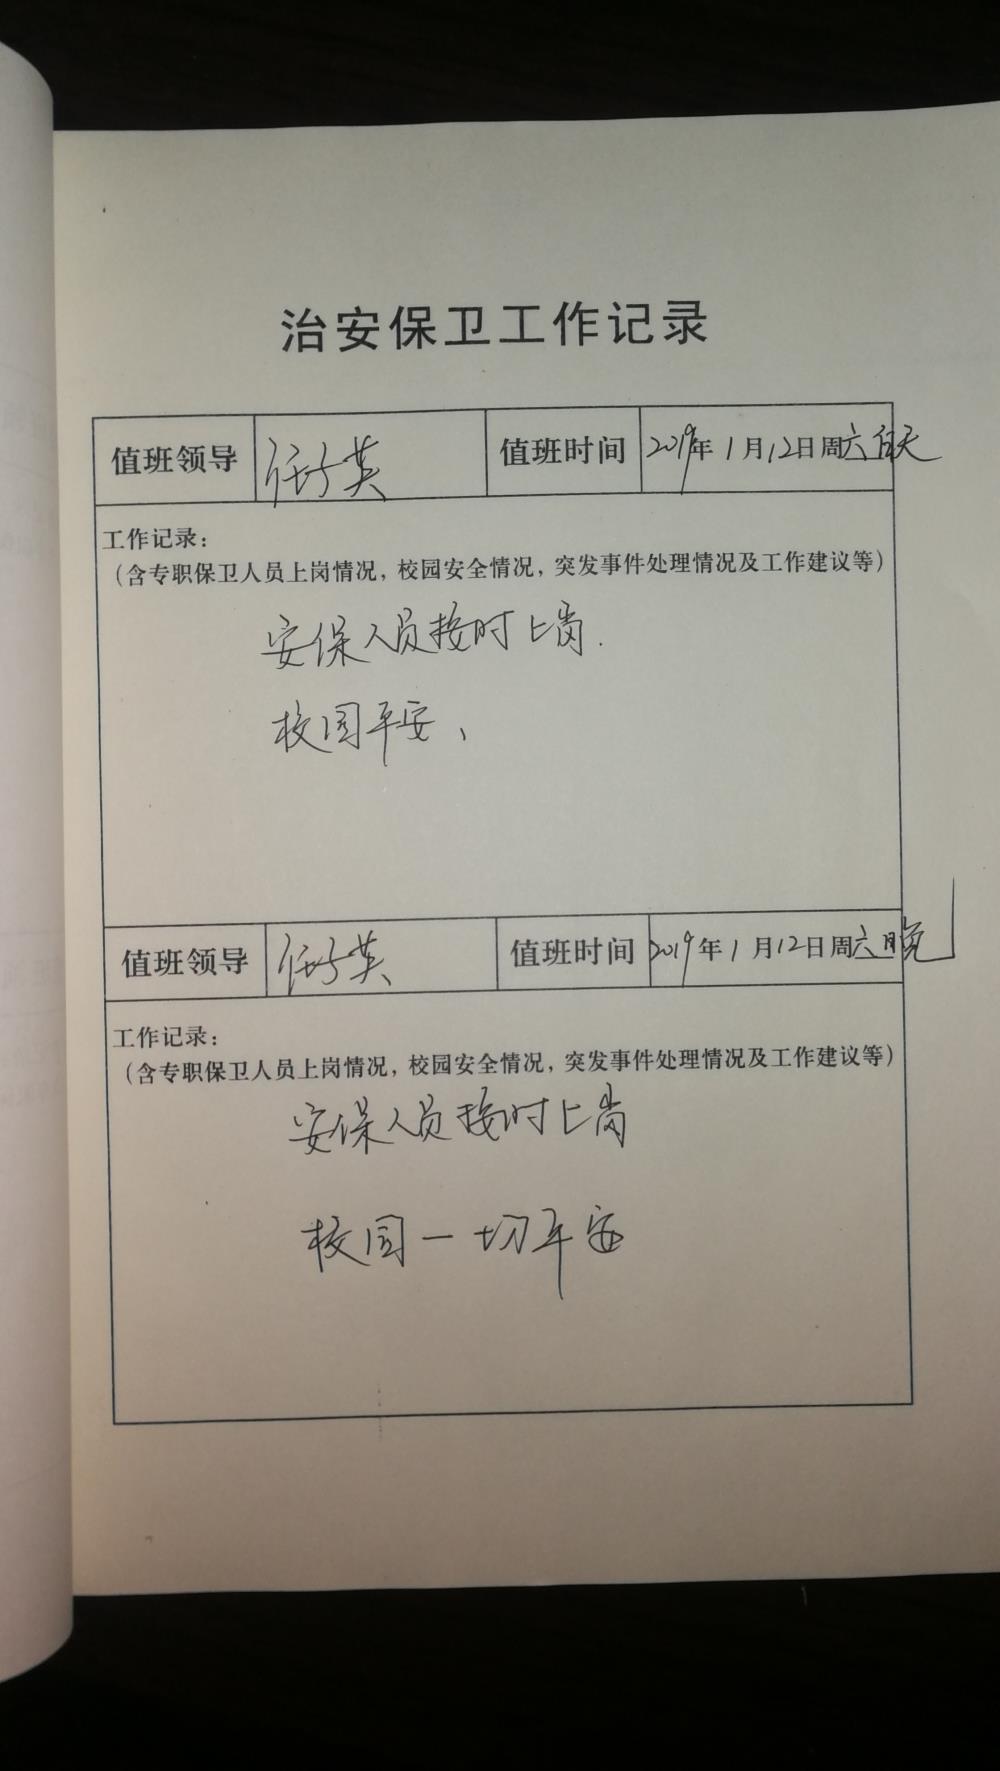 治安保卫工作记录
值班领导 任英 值班时间 2019年1月12日周六白天
工作记录：
（含专职保卫人员上岗情况，校园安全情况，突发事件处理情况及工作建议等）
安保人员按时上岗.
校园平安、
值班领导 任英 值班时间 2019年1月12日周六晚
工作记录：
（含专职保卫人员上岗情况，校园安全情况，突发事件处理情况及工作建议等）
安保人员按时上岗
校园一切平安